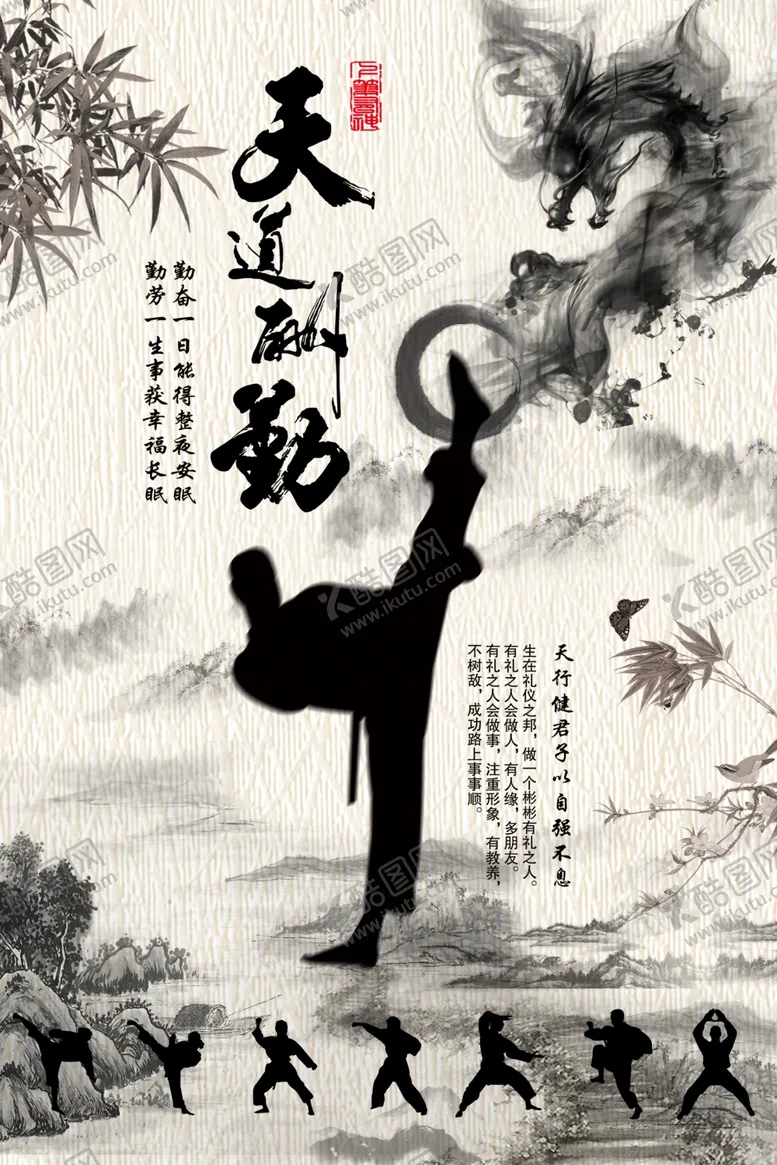 天道酬勤
勤奋一日能得整夜安眠
勤劳一生事获幸福长眠
天行健君子以自强不息
生在礼仪之邦，做一个彬彬有礼之人。
有礼之人会做人，有人缘，多朋友。
有礼之人会做事，注重形象，有教养，
不树敌，成功路上事事顺。
酷图网
www.ikutu.com